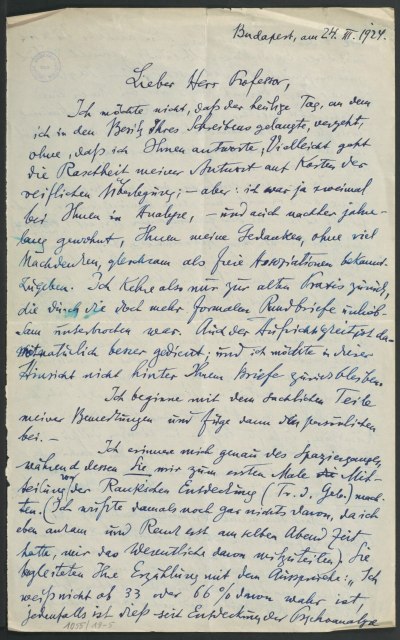 Budapest, am 24. III. 1924.
Lieber Herr Professor,
Ich möchte nicht, daß der heutige Tag, an dem
ich in den Besitz Ihres Schreibens gelangte, vergeht,
ohne, daß ich Ihnen antworte; Vielleicht geht
die Raschheit meiner Antwort auf Kosten der
reiflichen Überlegung; – aber: ich war ja zweimal
bei Ihnen in Analyse, – und auch nachher jahre-
lang gewohnt, Ihnen meine Gedanken, ohne viel
Nachdenken, gleichsam als freie Assoziationen bekannt-
zugeben. Ich kehre also nur zur alten Praxis zurück,
die durch die doch mehr formalen Rundbriefe
unterbrochen war. Auch der Aufrichtigkeit ist da-
mit natürlich besser gedient; und ich möchte in dieser
Hinsicht nicht hinter Ihrem Briefe zurückbleiben
Ich beginne mit dem sachlichen Teile
meiner Bemerkungen und füge dann das persönlichen
bei. –
Ich erinnere mich genau des Spazierganges,
während dessen Sie mir zum ersten Male die Mit-
teilung von der Rankschen Entdeckung (Tr. d. Geb.) mach-
ten. (Ich wußte damals noch gar nichts davon, da ich
eben ankam und Rank erst am selben Abend Zeit
hatte, mir das Wesentliche davon mitzuteilen). Sie
begleiteten Ihre Erzählung mit dem Ausspruche: „Ich
weiß nicht ob 33 oder 66 % davon wahr ist,
jedenfalls ist dieß seit Entdeckung der Psychoanalyse
1055/18-5